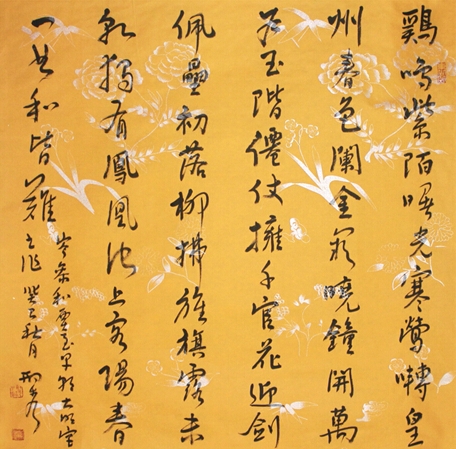 鷄鳴紫陌曙光寒鶯囀皇
州春色闌金闕曉鐘開萬
户玉階僊仗擁千官花迎劍
佩曐初落柳拂旌旗露未
乾獨有鳳凰池上客陽春
一曲和皆難
岑參和賈至早朝大明宮
之作 癸巳秋月